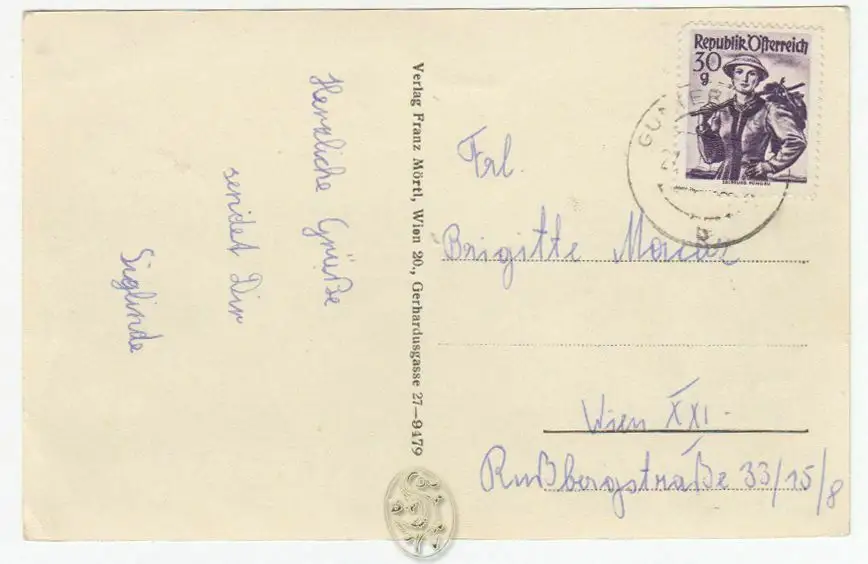 Herzliche Grüße
sendet Dir
Siglinde
Verlag Franz Mörtl, Wien 20., Gerhardusgasse 27—9479
Republik Österreich
30
g
SALZBURG PONGAU
b
Frl.
Brigitte
Wien XXI.
Rußbergstraße 33/15/8